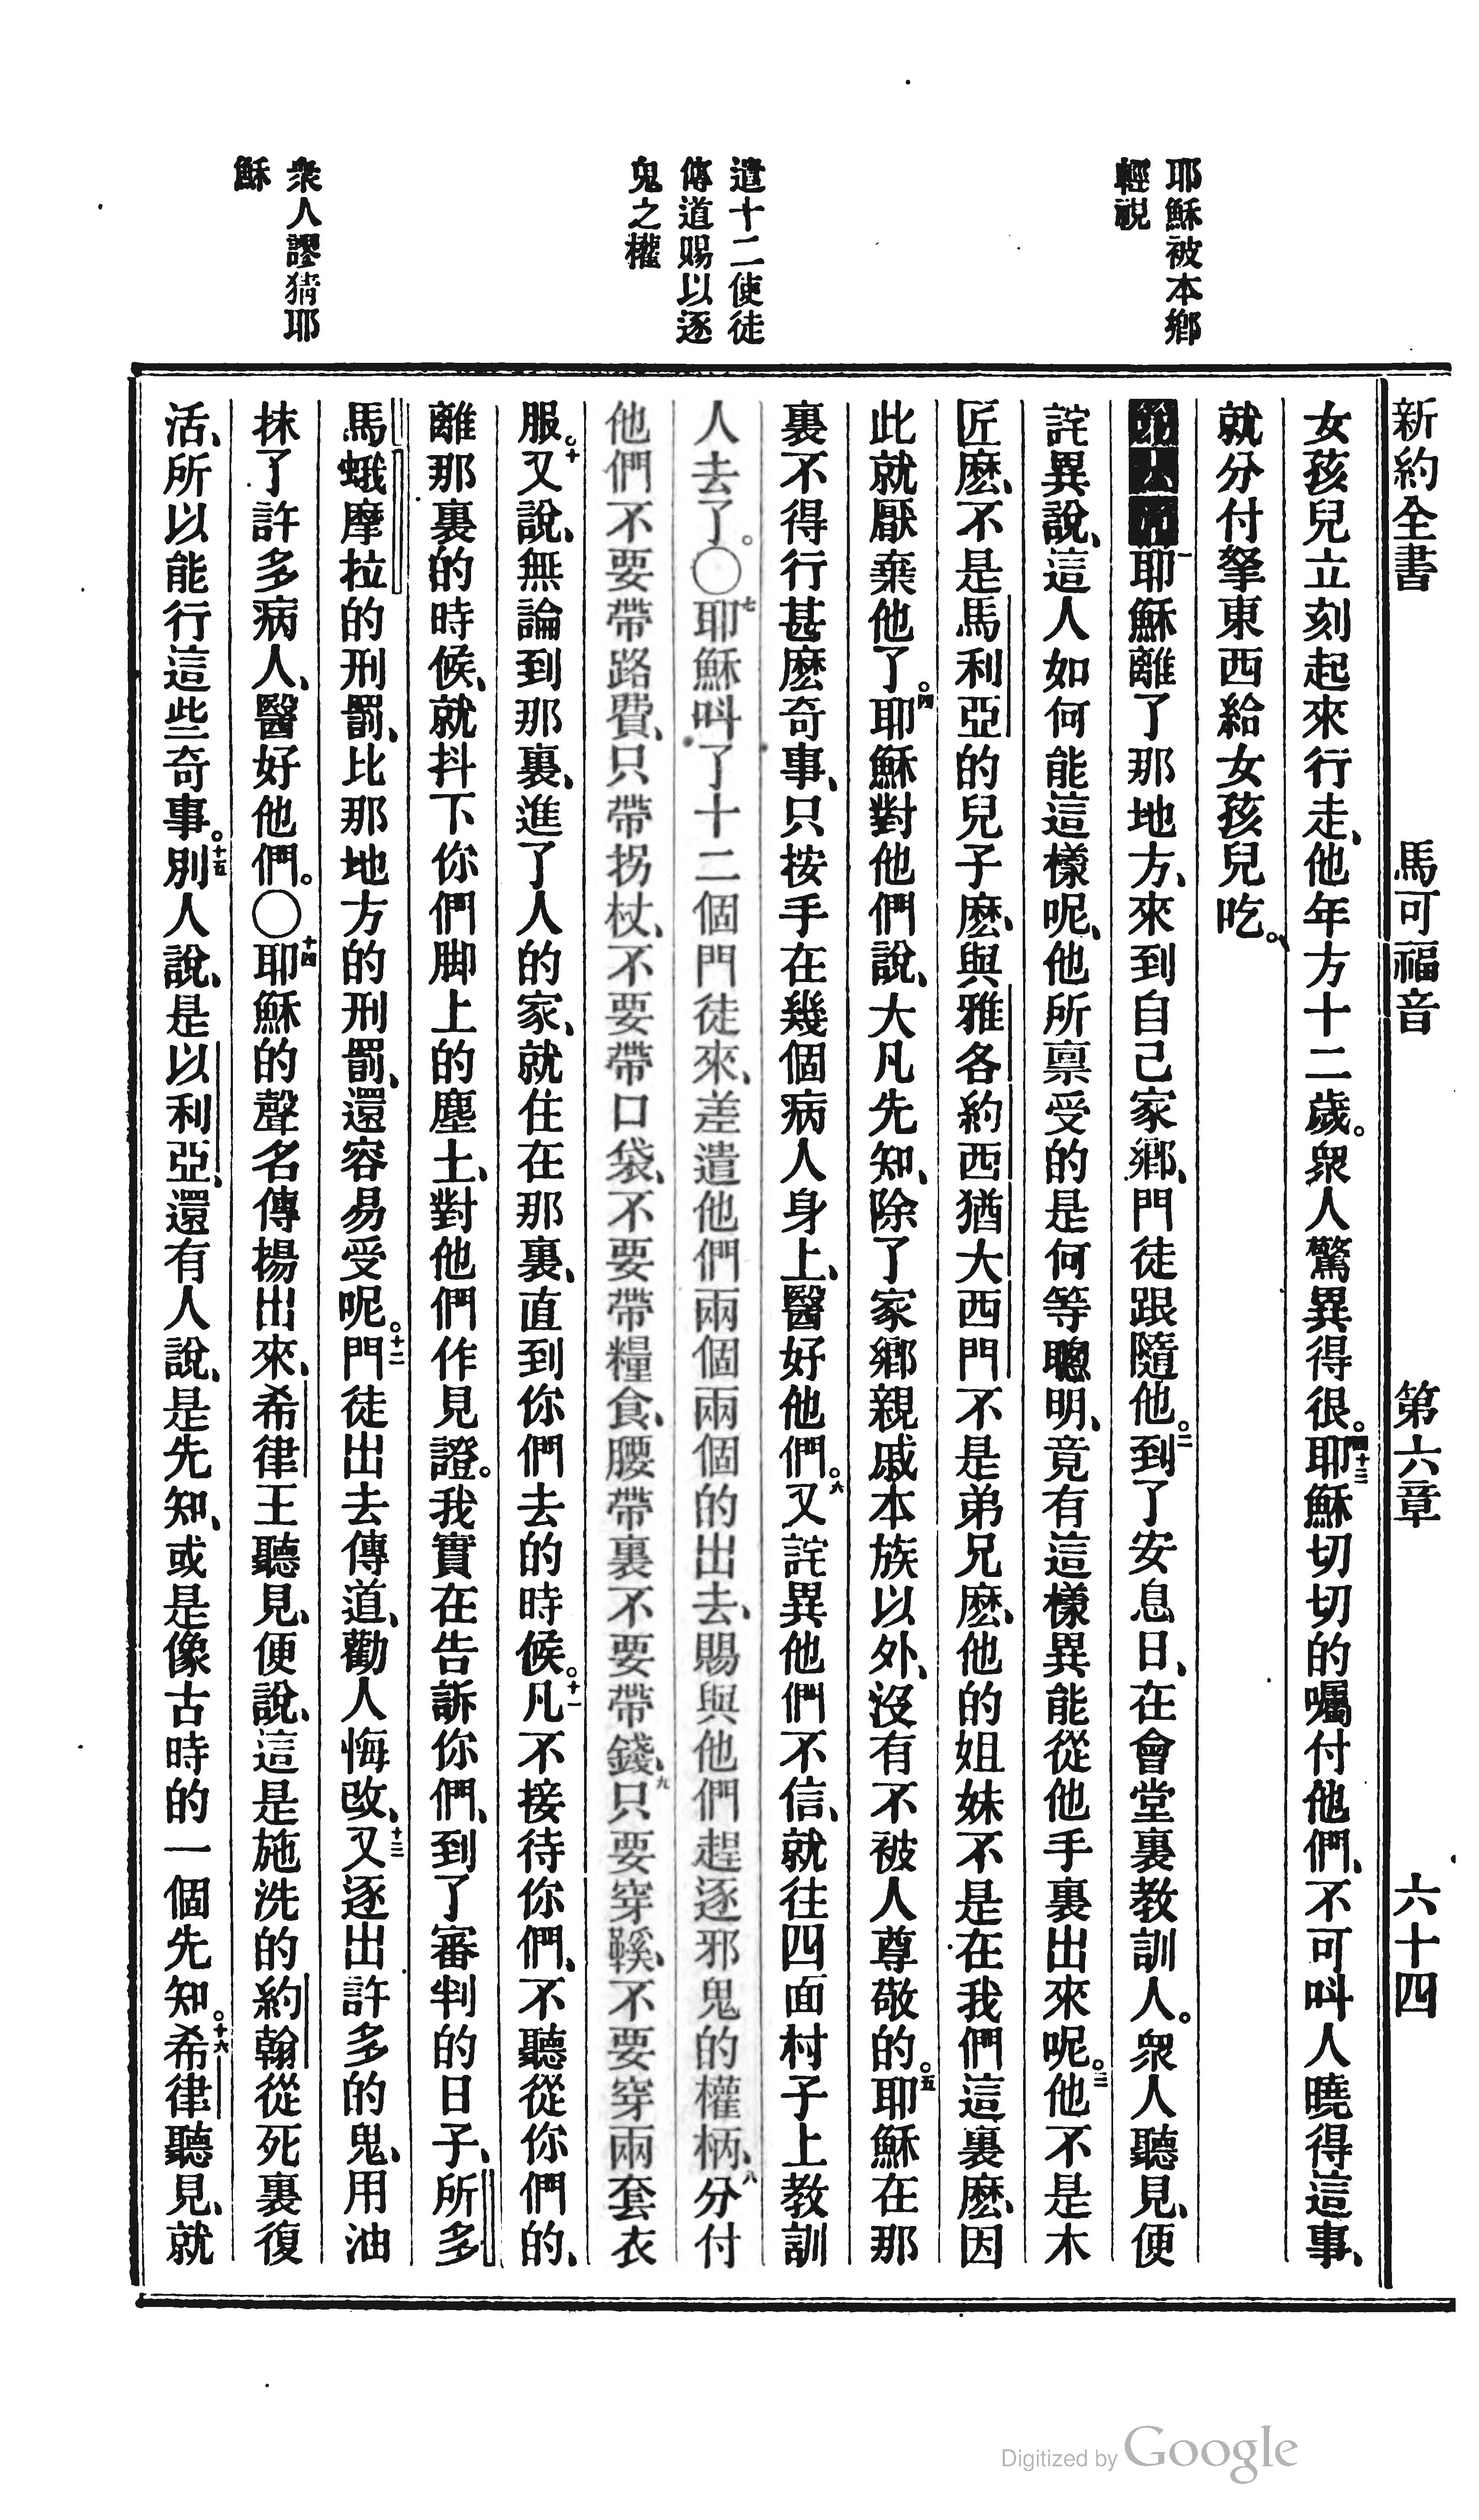 新約全書 馬可福音 第六章 六十四
耶穌被本鄉
輕視
遣十二使徒
傳道賜以逐
鬼之權
衆人謬猜耶
穌
女孩兒立刻起來行走、他年方十二歲。衆人驚異得很。四十三耶穌切切的囑付他們、不可呌人曉得這事、
就分付拏東西給女孩兒吃。
第六章一耶穌離了那地方、來到自己家鄉、門徒跟隨他。二到了安息日、在會堂裏教訓人。衆人聽見、便
詫異說、這人如何能這樣呢、他所禀受的是何等聰明、竟有這樣異能從他手裏出來呢。三他不是木
匠麽、不是馬利亞的兒子麽、與雅各約西猶大西門不是弟兄麽、他的姐妹不是在我們這裏麽、因
此就厭棄他了。四耶穌對他們說、大凡先知、除了家鄉親戚本族以外、沒有不被人尊敬的。五耶穌在那
裏不得行甚麽奇事、只按手在幾個病人身上、醫好他們。六又詫異他們不信、就往四面村子上教訓
人去了。〇七耶穌呌了十二個門徒來、差遣他們兩個兩個的出去、賜與他們趕逐邪鬼的權柄、八分付
他們不要帶路費、只帶拐杖、不要帶口袋、不要帶糧食、腰帶裏不要帶錢、九只要穿鞵、不要穿兩套衣
服。十又說、無論到那裏、進了人的家、就住在那裏、直到你們去的時候。十一凡不接待你們、不聽從你們的、
離那裏的時候、就抖下你們脚上的塵土、對他們作見證。我實在告訴你們、到了審判的日子、所多
馬蛾摩拉的刑罰、比那地方的刑罰、還容易受呢。十二門徒出去傳道、勸人悔改、十三又逐出許多的鬼、用油
抹了許多病人、醫好他們。〇十四耶穌的聲名傳揚出來、希律王聽見、便說、這是施洗的約翰從死裏復
活、所以能行這些奇事。十五別人說、是以利亞、還有人說、是先知、或是像古時的一個先知。十六希律聽見、就
Digitized by Google